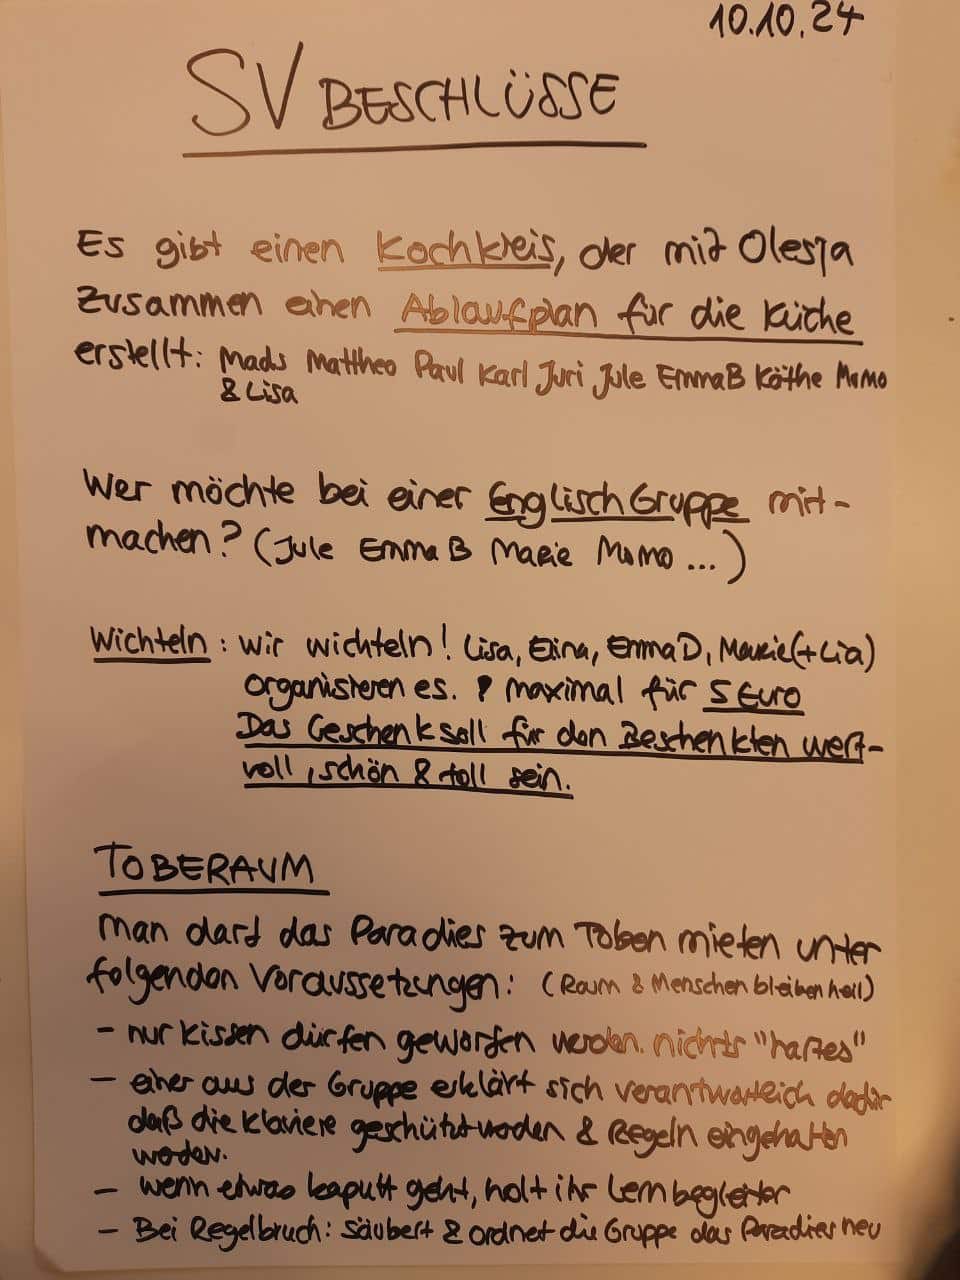 10.10.24
SV BESCHLÜSSE
Es gibt einen Kochkreis, der mit Olesja
zusammen einen Ablaufplan für die Küche
erstellt: Mads Mattheo Paul Karl Juri Jule Emma B Käthe Momo
& Lisa
Wer möchte bei einer EnglischGruppe mit-
machen? (Jule Emma B Marie Momo ...)
Wichteln: wir wichteln! Lisa, Elina, Emma D, Marie (+ Lia)
organisieren es. ! maximal für 5 Euro
Das Geschenk soll für den Beschenkten wert-
voll, schön & toll sein.
TOBERAUM
Man darf das Paradies zum Toben mieten unter
folgenden Voraussetzungen: (Raum & Menschen bleiben heil)
- nur Kissen dürfen geworfen werden. nichts "hartes"
- einer aus der Gruppe erklärt sich verantwortlich dafür
daß die Klaviere geschützt werden & Regeln eingehalten
werden.
- wenn etwas kaputt geht, holt ihr Lernbegleiter
- Bei Regelbruch: säubert & ordnet die Gruppe das Paradies neu